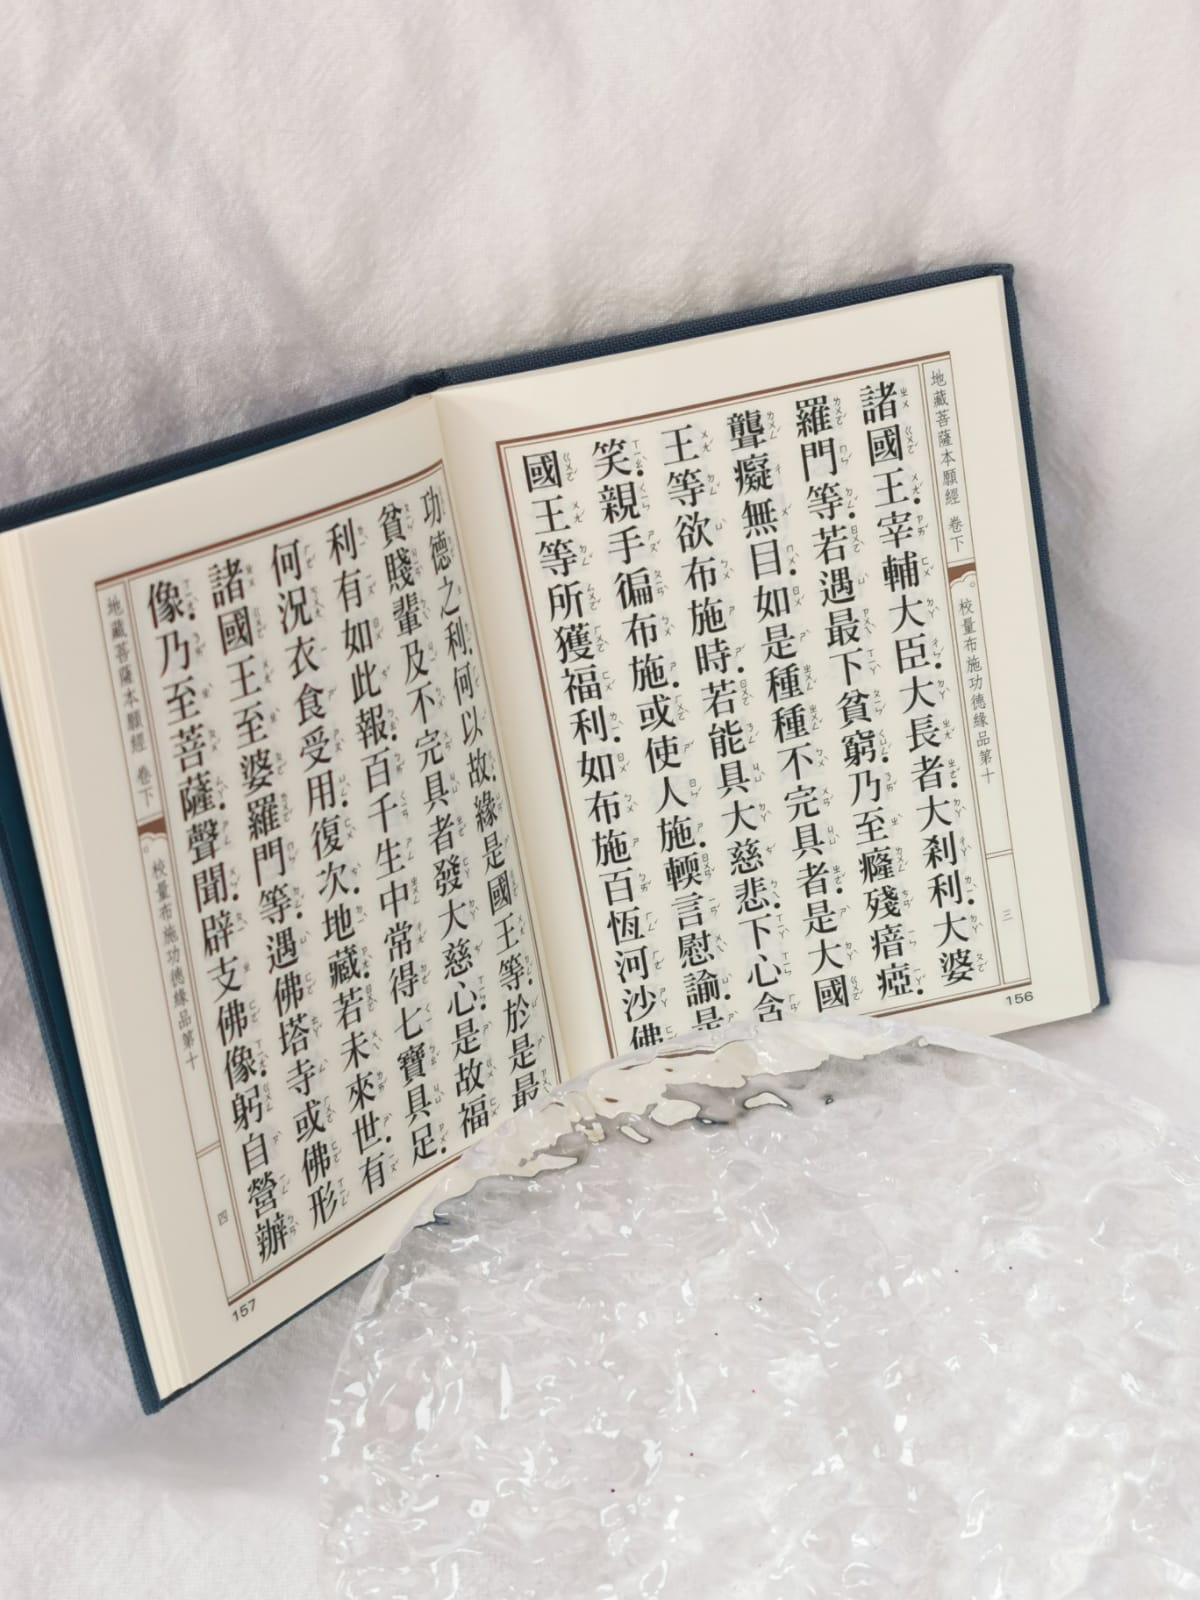 地藏菩薩本願經 卷下 校量布施功德緣品第十 三
諸國王宰輔大臣大長者大剎利大婆
羅門等若遇最下貧窮乃至癃殘瘖瘂
聾癡無目如是種種不完具者是大國
王等欲布施時若能具大慈悲下心含
笑親手徧布施或使人施輭言慰諭是
國王等所獲福利如布施百恆河沙佛
156
功德之利何以故緣是國王等於是最
貧賤輩及不完具者發大慈心是故福
利有如此報百千生中常得七寶具足
何況衣食受用復次地藏若未來世有
諸國王至婆羅門等遇佛塔寺或佛形
像乃至菩薩聲聞辟支佛像躬自營辦
地藏菩薩本願經 卷下 校量布施功德緣品第十 四
157